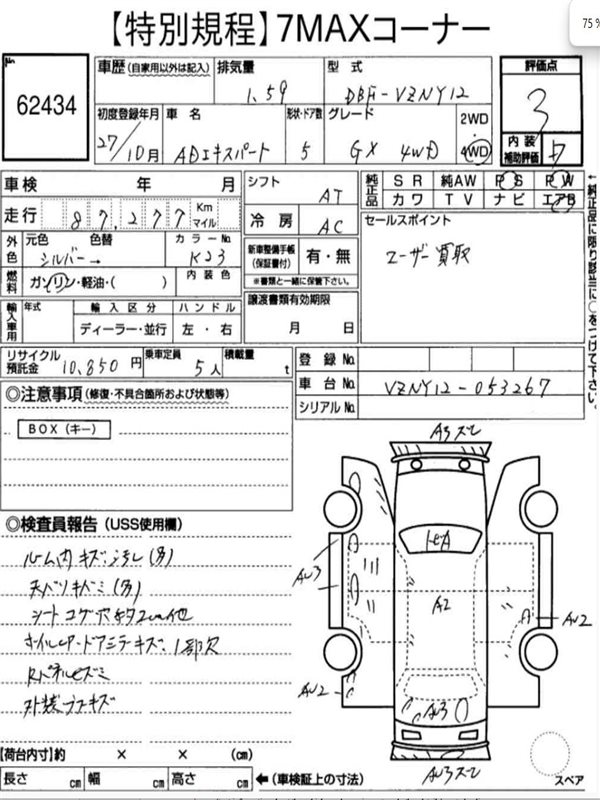 75 %
【特別規程】7MAXコーナー
No.
62434
車歴（自家用以外は記入）
排気量
型式
評価点
1.59
DBF-VZNY12
3
初度登録年月
車名
形状・ドア数
グレード
2WD
27/10月
ADエキスパート
5
GX 4WD
4WD
内装
補助評価
車検 年 月
シフト
AT
純正品
SR 純AW PS PW
カワ TV ナビ エアB
走行 87,277 Km マイル
冷房
AC
セールスポイント
ユーザー買取
外色
元色 色替 カラーNo.
シルバー→ K23
新車整備手帳
（保証書付）
有・無
※書類と一緒に保管下さい。
燃料
ガソリン・軽油・（ ）
内装色
輸入車用
年式
輸入区分
ハンドル
ディーラー・並行
左・右
譲渡書類有効期限
月 日
←純正品に限り該当に○をつけて下さい。
リサイクル
預託金
10,850円
乗車定員
5人
積載量
t
登録No.
車台No.
VZNY12-053267
シリアルNo.
◎注意事項（修復・不具合箇所および状態等）
BOX（キー）
◎検査員報告（USS使用欄）
ルーム内キズ、汚れ（多）
天バリキバミ（多）
シート コゲ穴
Rパネルヒズミ
A3
AU3
A2
AU2
AU2
AU3
AU3
【荷台内寸】約 × × （cm）
長さ cm 幅 cm 高さ cm
←（車検証上の寸法）
スペア